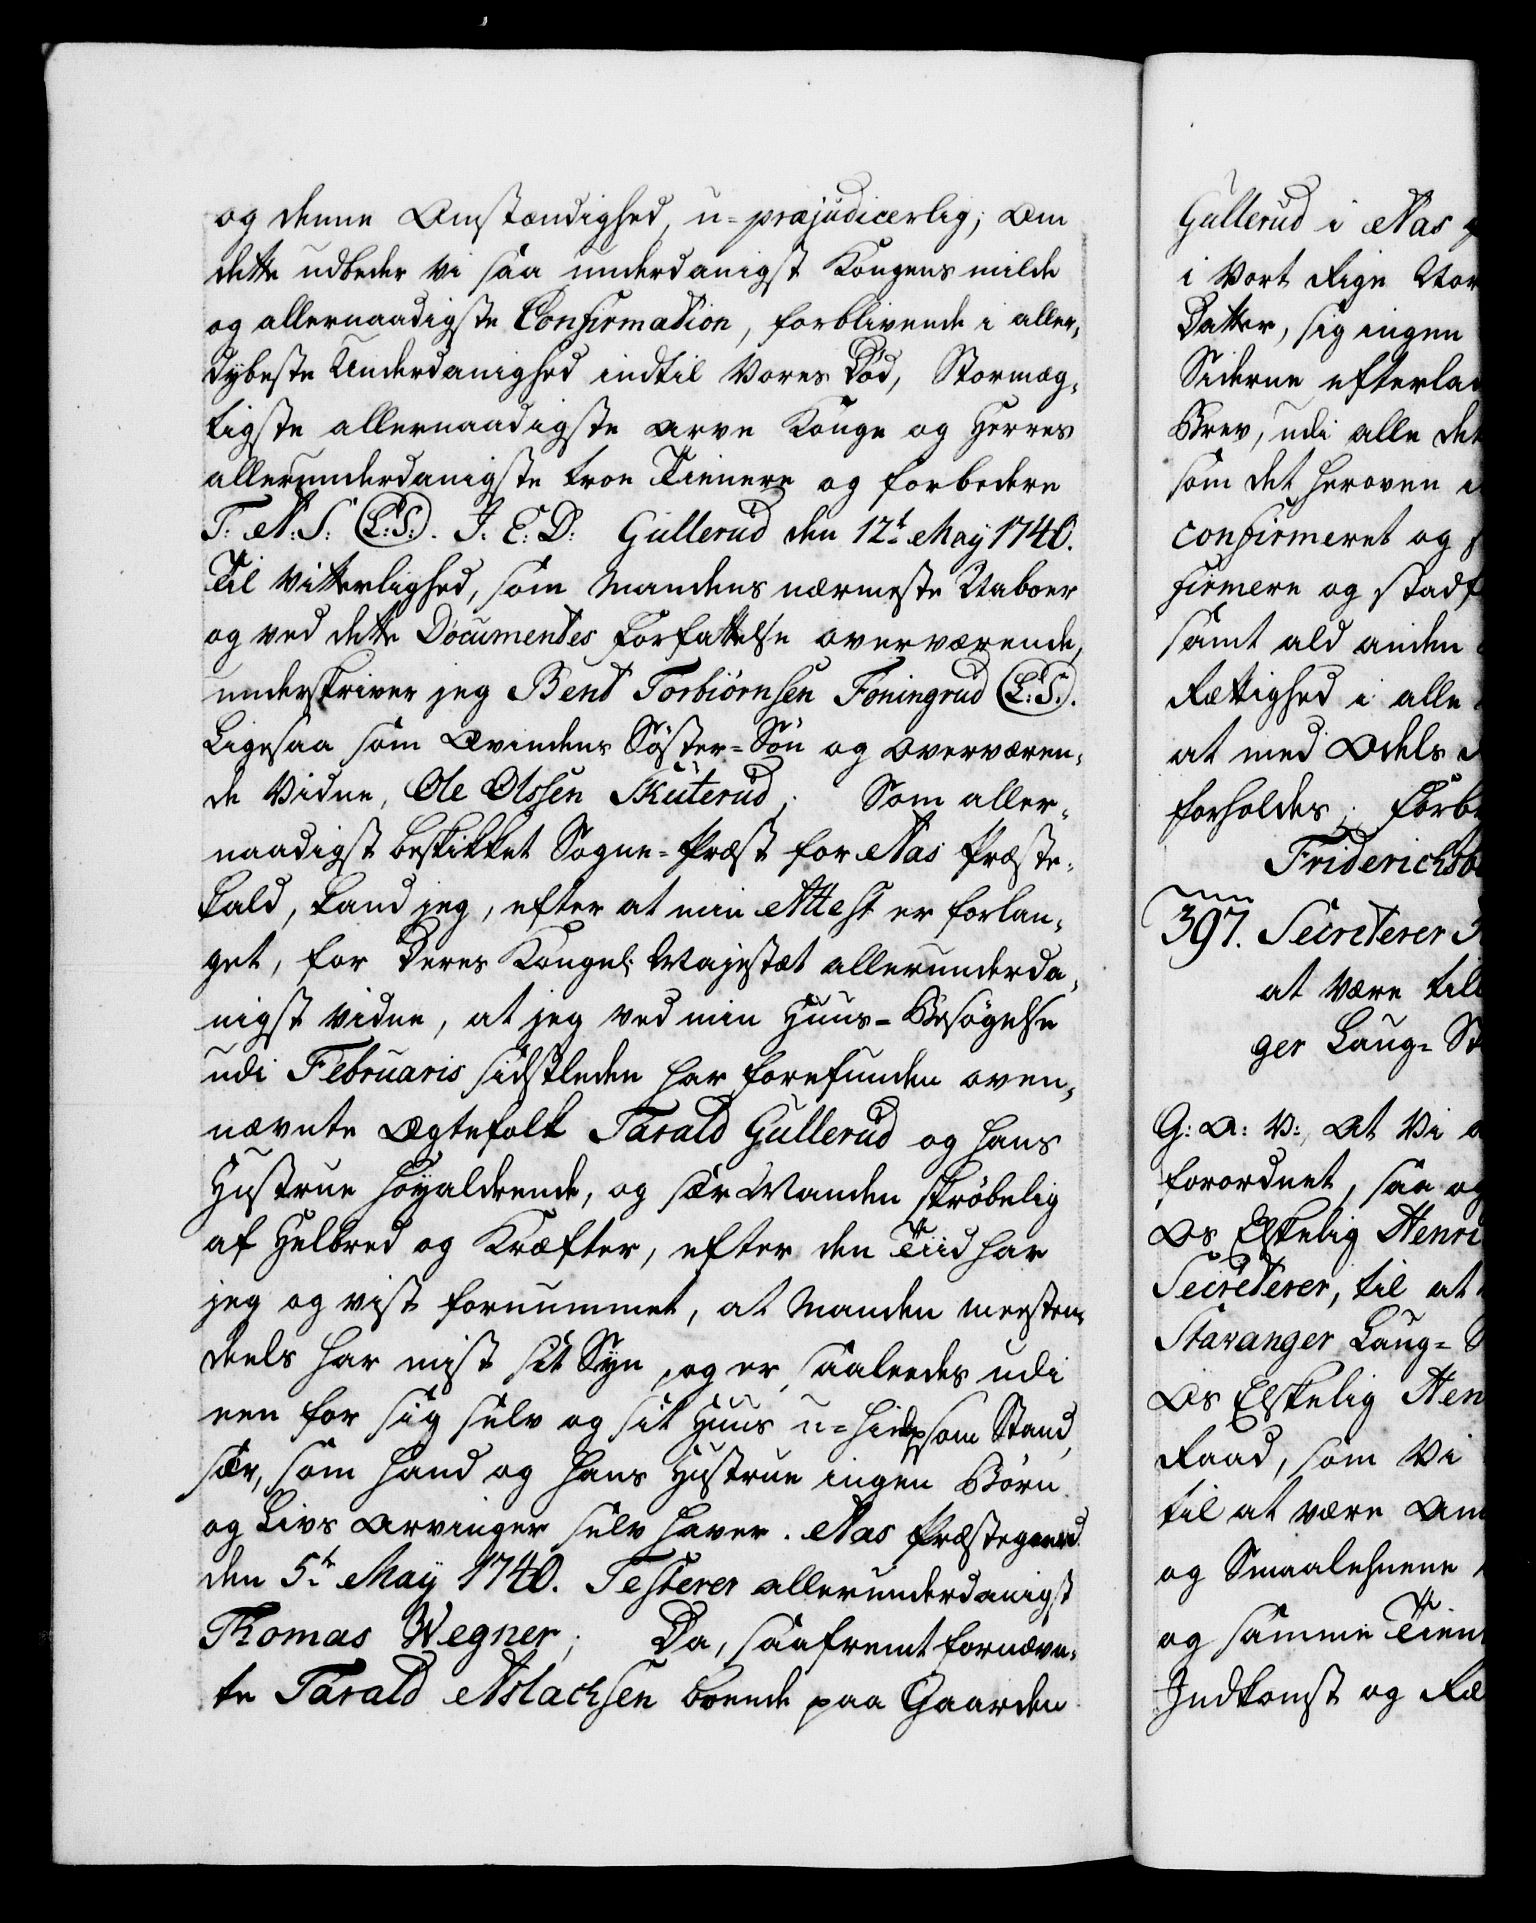 og denne Omstændighed, u-præjudicerlig; Om
dette udbeder vi saa underdanigst Kongens milde
og allernaadigste Confirmation, forblivende i aller-
dybeste Underdanighed indtil Vores Død, Stormæg-
tigste allernaadigste Arve Konge og Herres
allerunderdanigste troe Tienere og forbedere
T: A: S: (L:S:). J. E: D: Gullerud den 12t May 1740.
Til Vitterlighed, som Mandens nærmeste Naboer
og ved dette Documentes Forfattelse overværende,
underskriver jeg Bent Torbiörnsen Foningrud (L:S:).
Ligesaa som Qvindens Söster-Sön og Overværen-
de Vidne, Ole Olssen Skuterud; Som aller-
naadigst beskikket Sogne-Præst for Næs Præste-
kald, kand jeg, efter at min Attest er forlan-
get, for Deres Kongel: Majestæt allerunderda-
nigst vidne, at jeg ved min Huus-Besögelse
udi Februarii sidstleden har forefunden oven-
nævnte Ægtefolk Tarald Gullerud og hans
Hustrue höyaldrende, og sær Manden skröbelig
af Helbred og Kræfter, efter den Tiid har
jeg og vist fornummet, at Manden meesten-
deels har mist sit Syn, og er saaleedes udi
een for sig selv og sit Huus u-hielpsom Stand,
sær, som hand og hans Hustrue ingen Börn
og Livs Arvinger selv haver. Næs Præstegaard
den 5t May 1740. Testerer allerunderdanigst
Thomas Wegner; Da, saafremt fornævn-
te Tarald Aslachsen boende paa Gaarden
Gullerud i Næs
i Vort Rige Nor
Datter, sig ingen
Siderne efterlad
Brev, udi alle det
som det heroven
confirmeret og
firmere og stadf
samt ald anden
Rettighed i alle
at med Odels
forholdes; Forbe
Friderichsb
397. Secreterer
at være till
ger Laug-St
G: A: V:, At Vi
forordnet, saa og
Os Elskelig Henri
Secreterer, til at
Stavanger Laug-S
Os Elskelig Hen
Raad, som Vi
til at være Am
og Smaalehnene
og samme Tien
Indkomst og Ræ